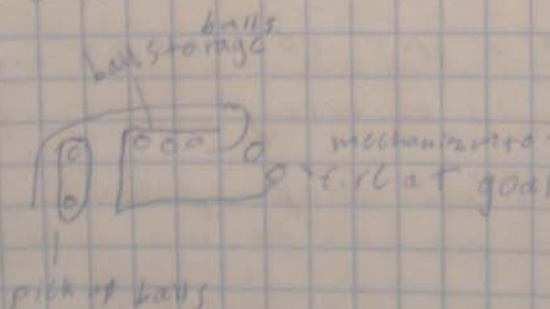 balls
balls storage
mechanizm to
fire at goal
pick up balls